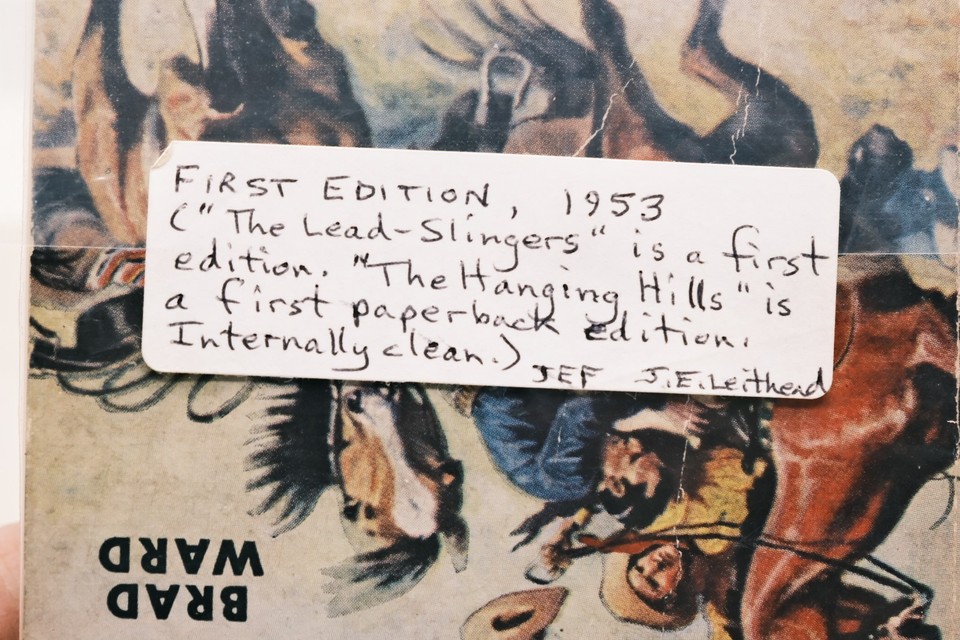 FIRST EDITION, 1953
("The Lead-Slingers" is a first
edition. "The Hanging Hills" is
a first paperback edition.
Internally clean.)
JEF J.E. Leithead
BRAD
WARD